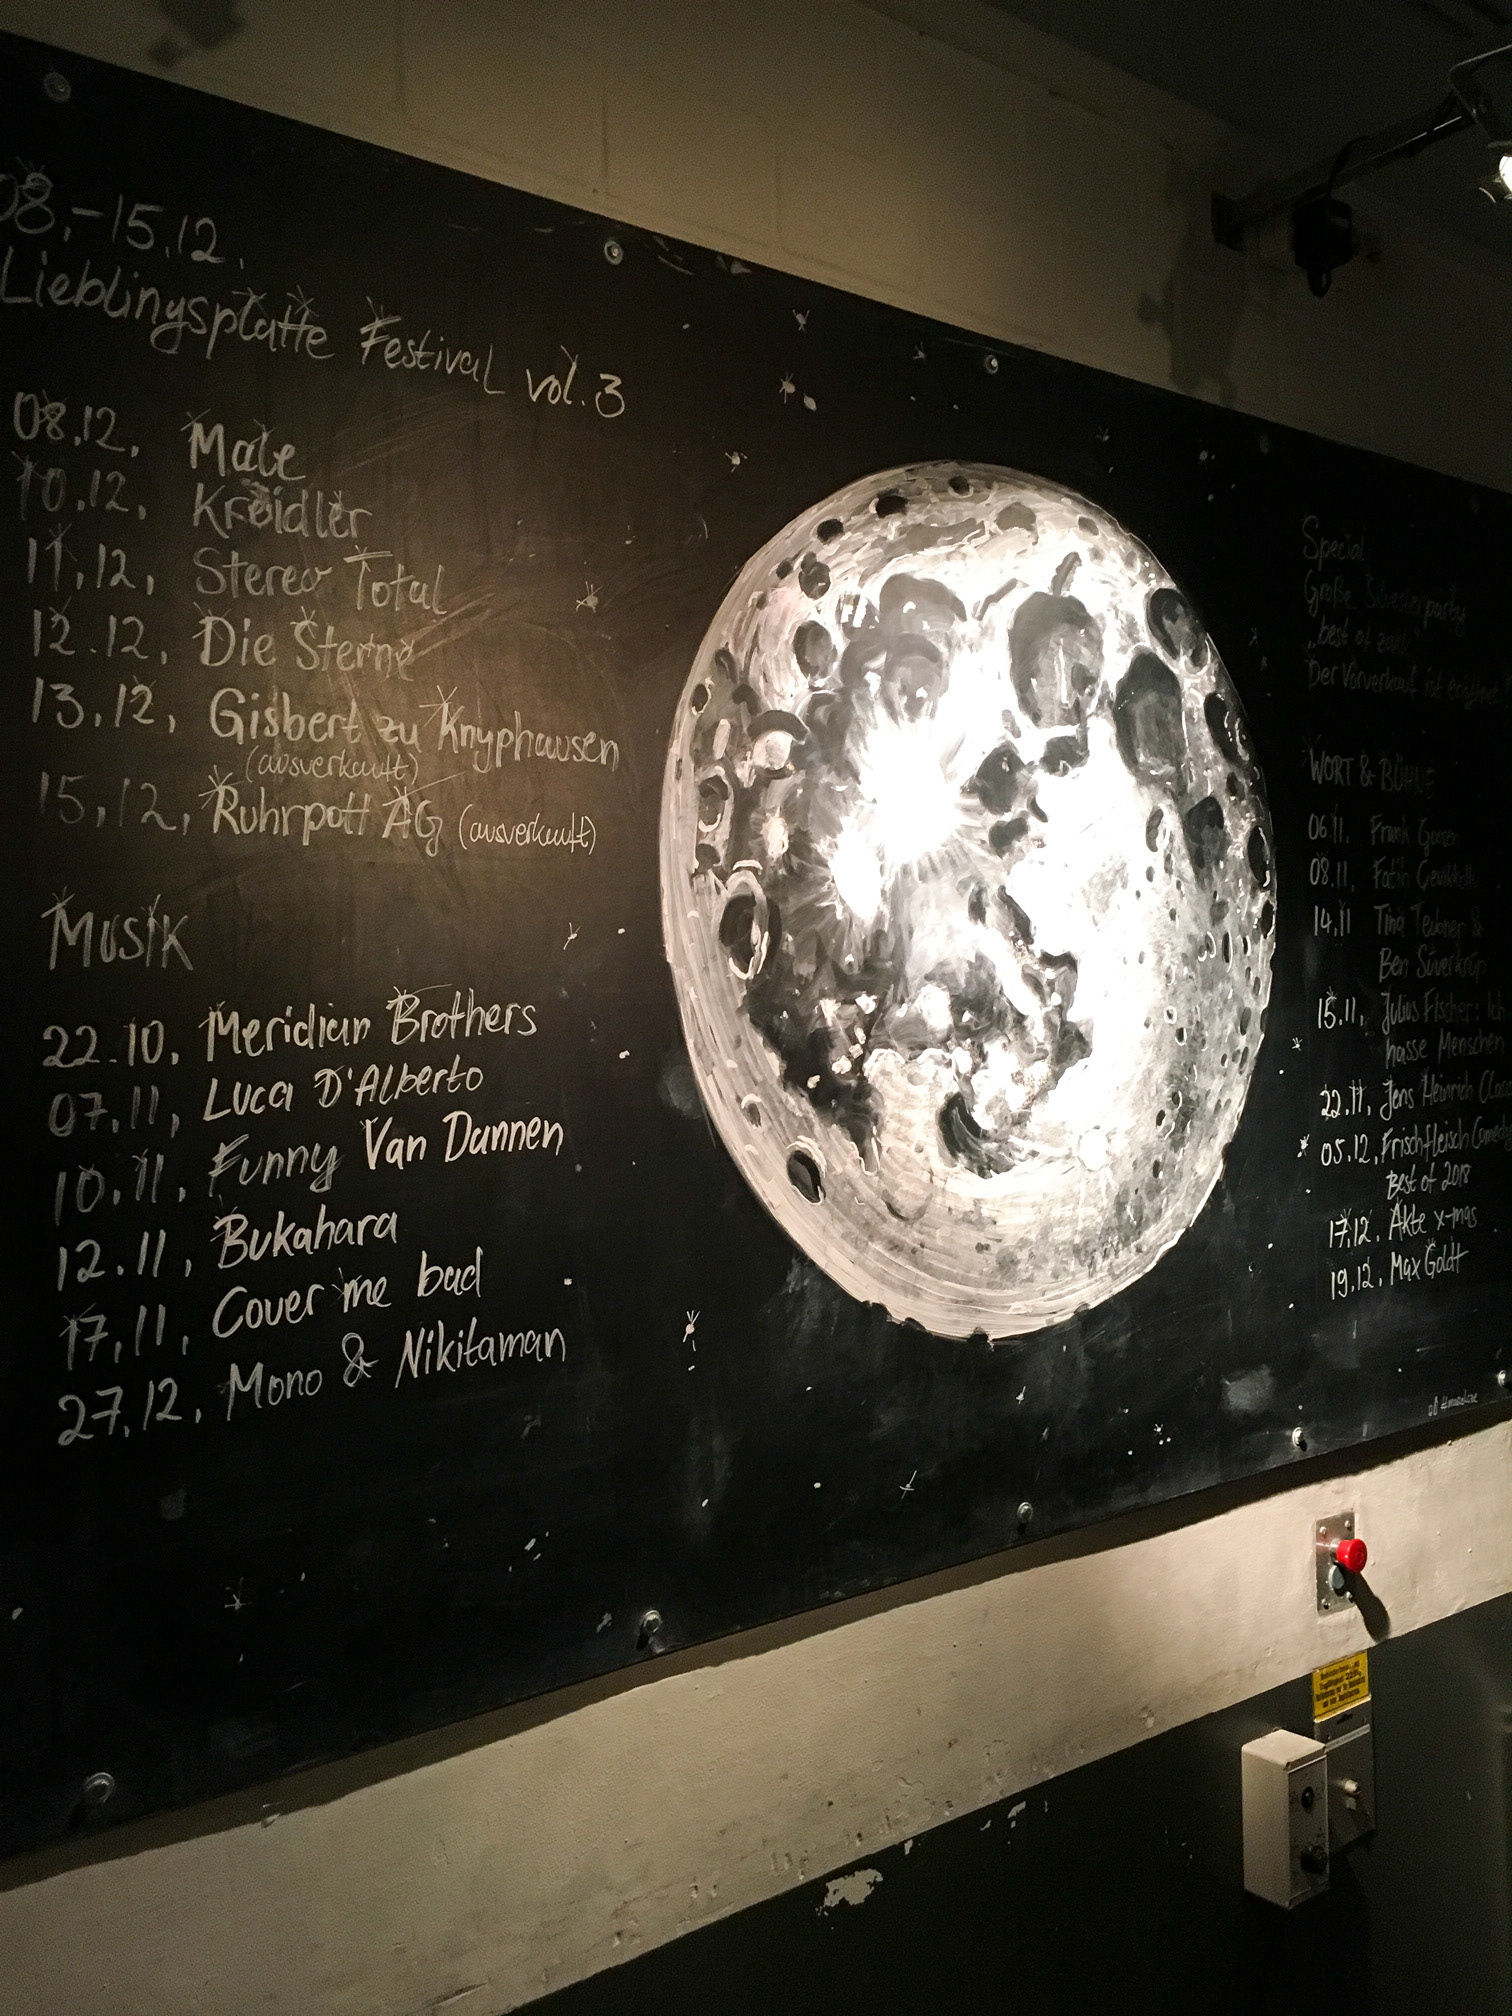 08.-15.12.
Lieblingsplatte Festival vol.3
08.12. Male
10.12. Kreidler
11.12. Stereo Total
12.12. Die Sterne
13.12. Gisbert zu Knyphausen
(ausverkauft)
15.12. Ruhrpott AG (ausverkauft)
MUSIK
22.10. Meridian Brothers
07.11. Luca D'Alberto
10.11. Funny Van Dannen
12.11. Bukahara
17.11. Cover me bad
27.12. Mono & Nikitaman
Special
Große Silvesterparty
"best of zakk"
Der Vorverkauf ist eröffnet
WORT & BÜHNE
06.11. Frank Goosen
08.11. Fatih
14.11 Tina Teubner &
Ben Süverkrüp
15.11. Julius Fischer: Ich
hasse Menschen
22.11. Jens Heinrich
05.12. Frischfleisch Comedy
Best of 2018
17.12. Akte x-mas
19.12. Max Goldt